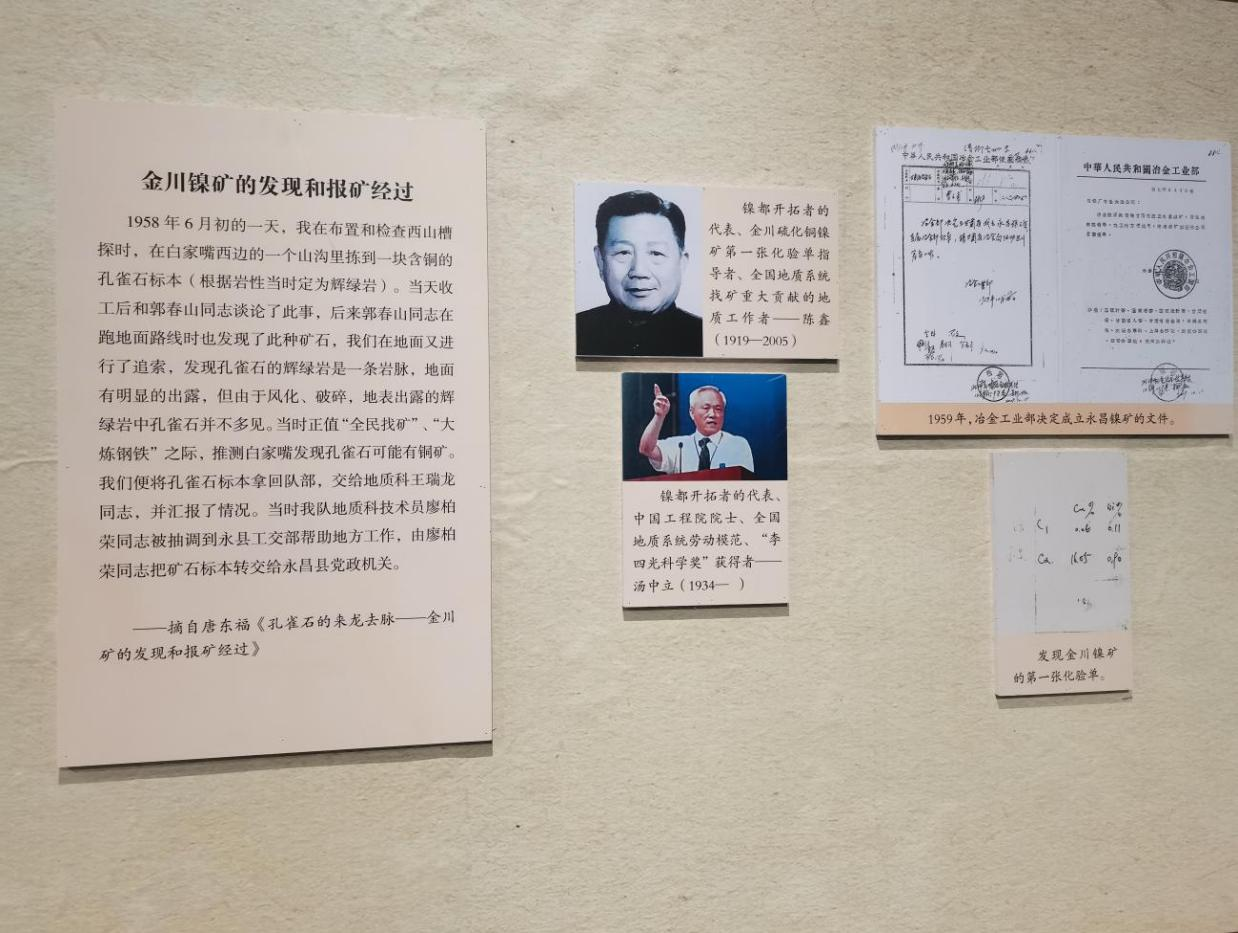 金川镍矿的发现和报矿经过
1958 年 6 月初的一天，我在布置和检查西山槽
探时，在白家嘴西边的一个山沟里拣到一块含铜的
孔雀石标本（根据岩性当时定为辉绿岩）。当天收
工后和郭春山同志谈论了此事，后来郭春山同志在
跑地面路线时也发现了此种矿石，我们在地面又进
行了追索，发现孔雀石的辉绿岩是一条岩脉，地面
有明显的出露，但由于风化、破碎，地表出露的辉
绿岩中孔雀石并不多见。当时正值“全民找矿”、“大
炼钢铁”之际，推测白家嘴发现孔雀石可能有铜矿。
我们便将孔雀石标本拿回队部，交给地质科王瑞龙
同志，并汇报了情况。当时我队地质科技术员廖柏
荣同志被抽调到永县工交部帮助地方工作，由廖柏
荣同志把矿石标本转交给永昌县党政机关。
——摘自唐东福《孔雀石的来龙去脉——金川
矿的发现和报矿经过》
镍都开拓者的
代表、金川硫化铜镍
矿第一张化验单指
导者、全国地质系统
找矿重大贡献的地
质工作者——陈鑫
（1919—2005）
镍都开拓者的代表、
中国工程院院士、全国
地质系统劳动模范、“李
四光科学奖”获得者——
汤中立（1934— ）
中华人民共和国冶金工业部
中華人民共和國冶金工业部
1959年，冶金工业部决定成立永昌镍矿的文件。
Cu% Ni%
C1 0.06 0.11
Ca 16.05 0.90
发现金川镍矿
的第一张化验单。